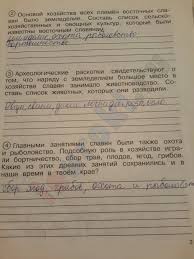 2 Основой хозяйства всех племён восточных сла-
вян было земледелие. Составь список сельско-
хозяйственных и овощных культур, которые были
известны восточным славянам.
земледелие, охота, рыболовство
бортничество
3 Археологические раскопки свидетельствуют о
том, что наряду с земледелием большое место в
хозяйстве славян занимало животноводство. Со-
ставь список животных, которых они разводили.
4 Главными занятиями славян были также охота
и рыболовство. Подсобную роль в хозяйстве игра-
ли бортничество, сбор трав, плодов, ягод, грибов.
Какие из этих древних занятий сохранились и в
наше время в твоём крае?
сбор грибов, охота и рыболовство
3